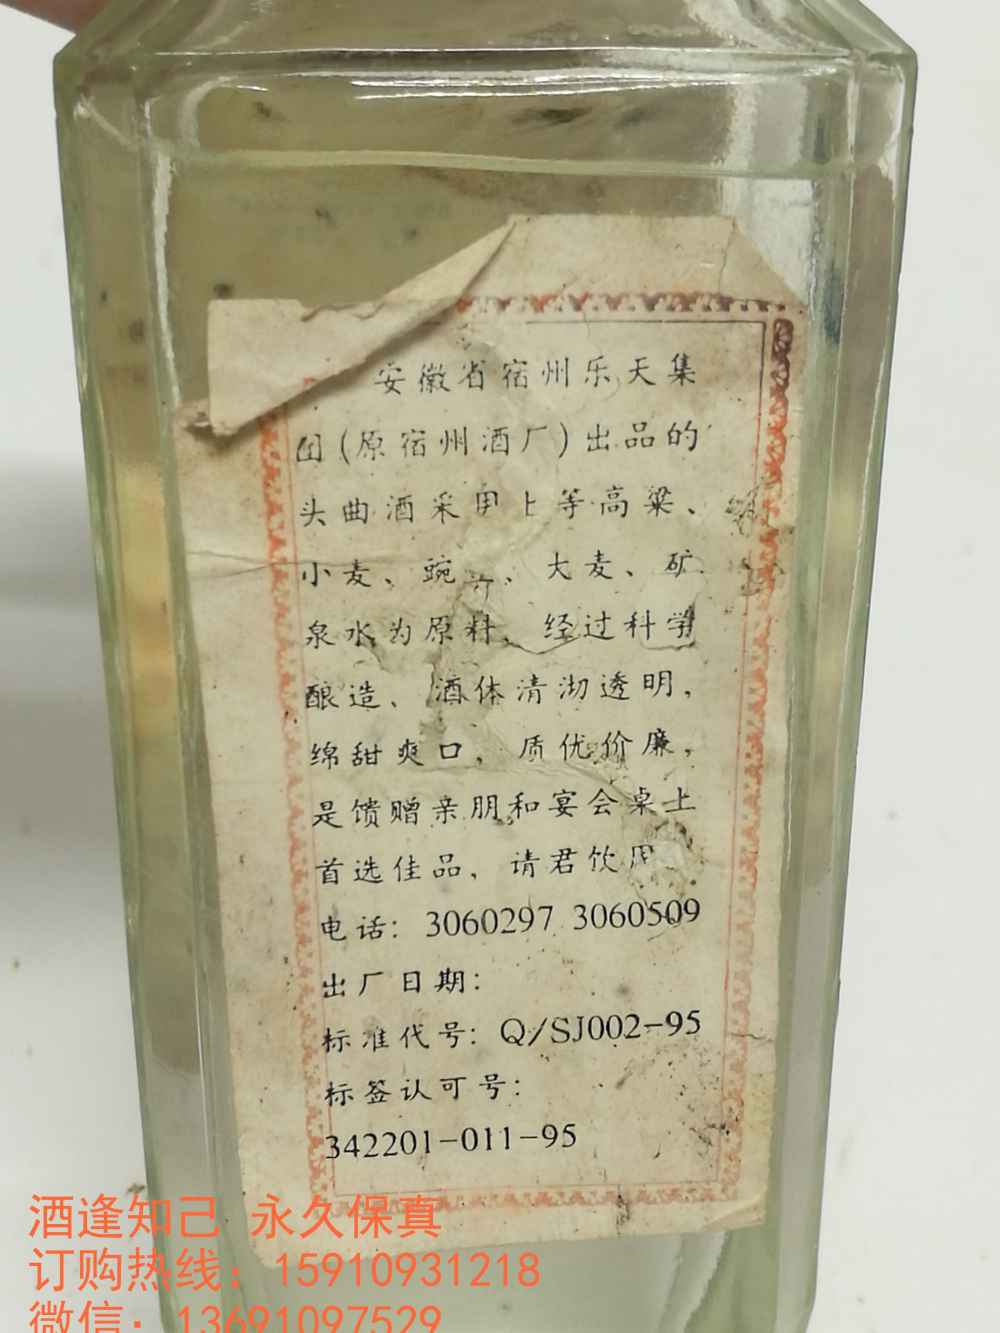 安徽省宿州乐天集
团(原宿州酒厂)出品的
头曲酒采用上等高粱、
小麦、豌、大麦、矿
泉水为原料、经过科学
酿造、酒体清沏透明,
绵甜爽口,质优价廉,
是馈赠亲朋和宴会桌上
首选佳品,请君饮用
电话:3060297 3060509
出厂日期:
标准代号:Q/SJ002-95
标签认可号:
342201-011-95
酒逢知己 永久保真
订购热线:15910931218
微信:13691097529